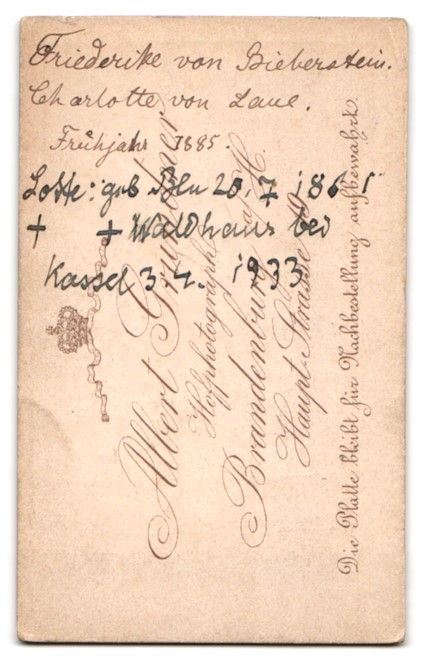 Friederike von Bieberstein.
Charlotte von Laue.
Frühjahr 1885.
Lotte: geb Bln 20. 7 1865
+ + Waldhaus bei
Kassel 3 4. 1933
Albert Grundner
Hofphotograph
Brandenburg a/H.
Haupt-Strasse
Die Platte bleibt für Nachbestellung aufbewahrt.